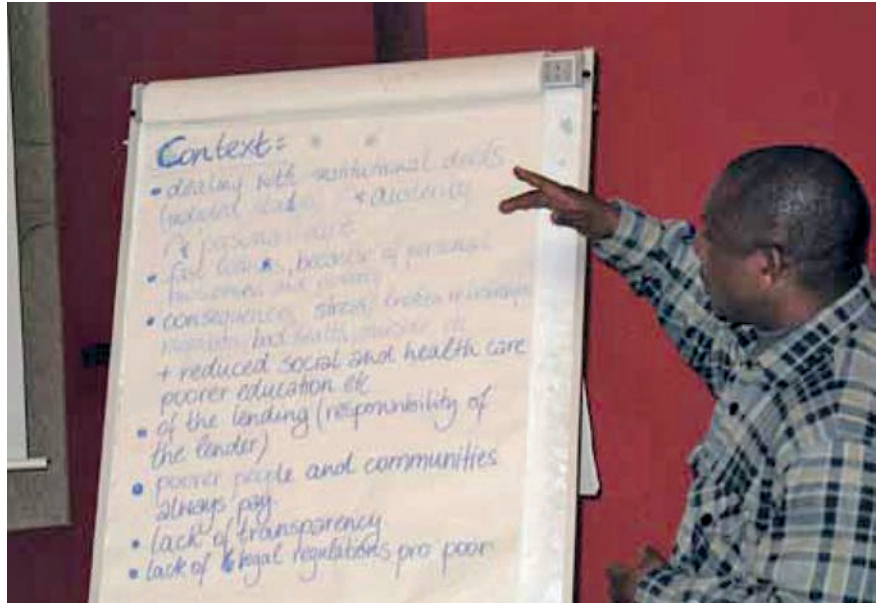 Context:
• dealing with institutional debts
& austerity
& personal debt
• because of personal
• consequences stress, broken relationships
bad health, suicide etc
+ reduced social and health care
poorer education etc
• of the lending (responsibility of
the lender)
• poorer people and communities
always pay
• lack of transparency
• lack of legal regulations pro poor